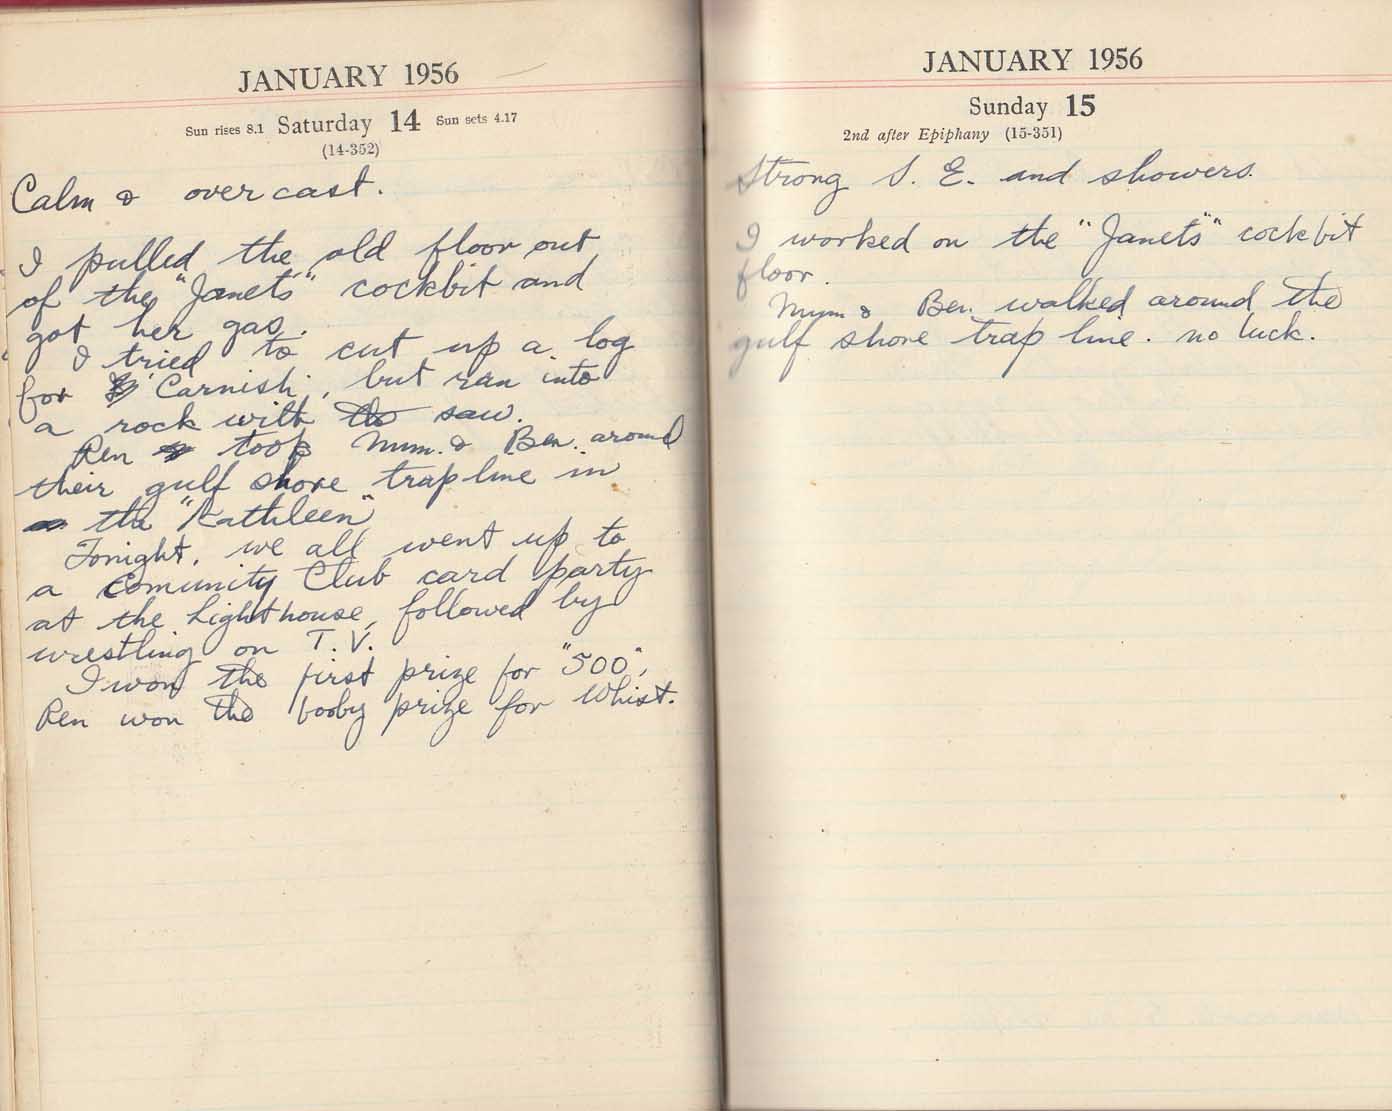 JANUARY 1956
Sun rises 8.1 Saturday 14 Sun sets 4.17
(14-352)
Calm & overcast.
I pulled the old floor out
of the "Janets" cockbit and
got her gas.
I tried to cut up a log
for Carnish, but ran into
a rock with the saw.
Ren took Mum. & Ben. around
their gulf shore trapline in
the "Kathleen"
Tonight, we all went up to
a Comunity Club card party
at the Lighthouse, followed by
wrestling on T.V.
I won the first prize for "500",
Ren won the booby prize for Whist.
JANUARY 1956
Sunday 15
2nd after Epiphany (15-351)
Strong S. E. and showers.
I worked on the "Janets" cockbit
floor.
Mum & Ben. walked around the
gulf shore trap line. no luck.